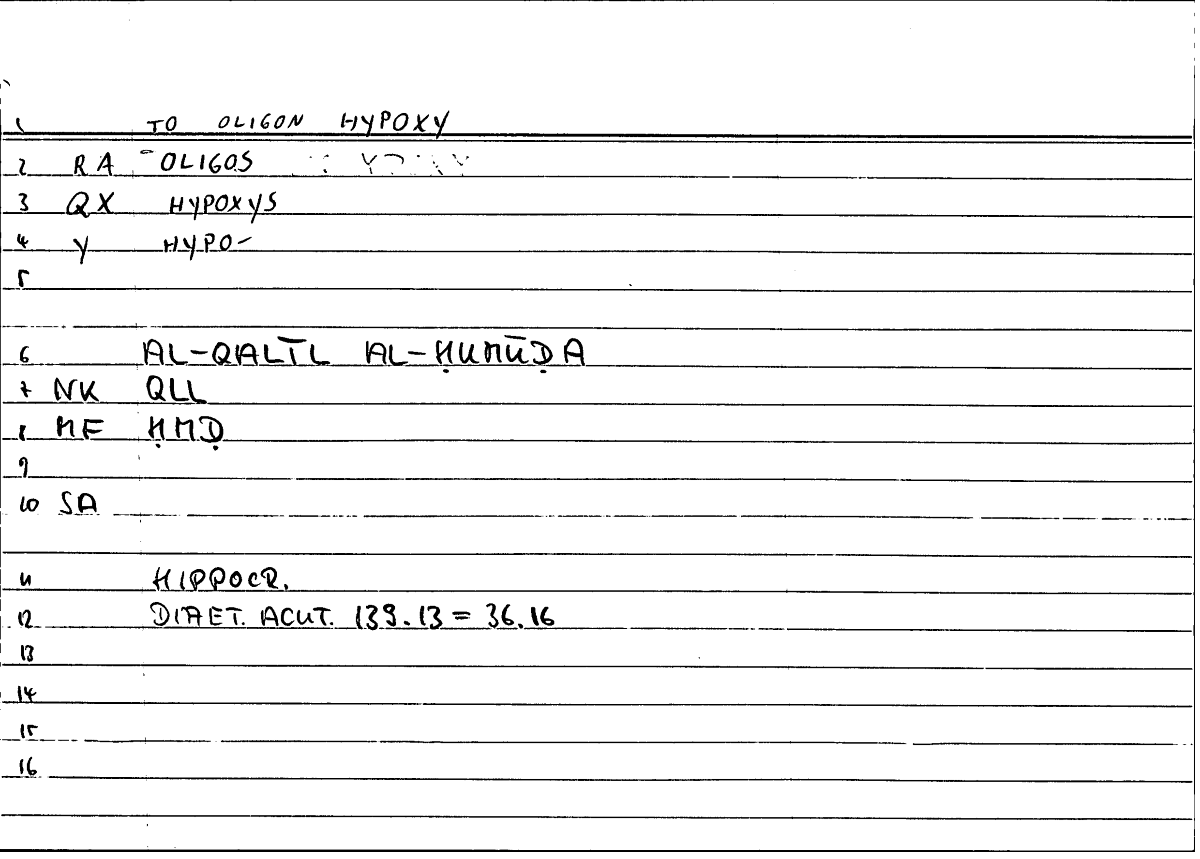 1 TO OLIGON HYPOXY
2 RA OLIGOS
3 QX HYPOXYS
4 Y HYPO-
5
6 AL-QALĪL AL-ḤUMŪḌA
7 NK QLL
8 MF ḤMḌ
9
10 SA
11 HIPPOCR.
12 DIAET. ACUT. 139.13 = 36.16
13
14
15
16